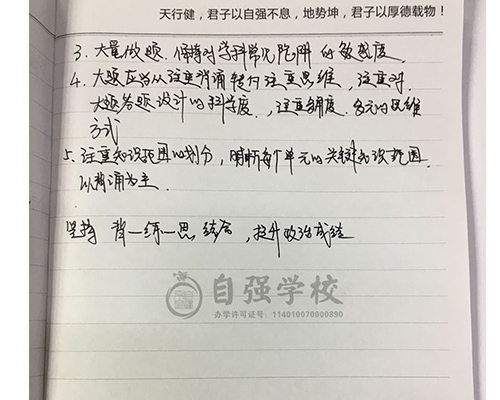 天行健，君子以自强不息，地势坤，君子以厚德载物！
3. 大量做题，保持对学科常见陷阱的敏感度.
4. 大题应当从注重背诵转向注重思维，注重对
大题答题设计的科学度，注重角度、多元的思维
方式
5. 注重知识范围的划分，明晰每个单元的关键知识范围.
以背诵为主.
坚持 背一练一思 结合，提升政治成绩
自强学校
办学许可证号：114010070000890